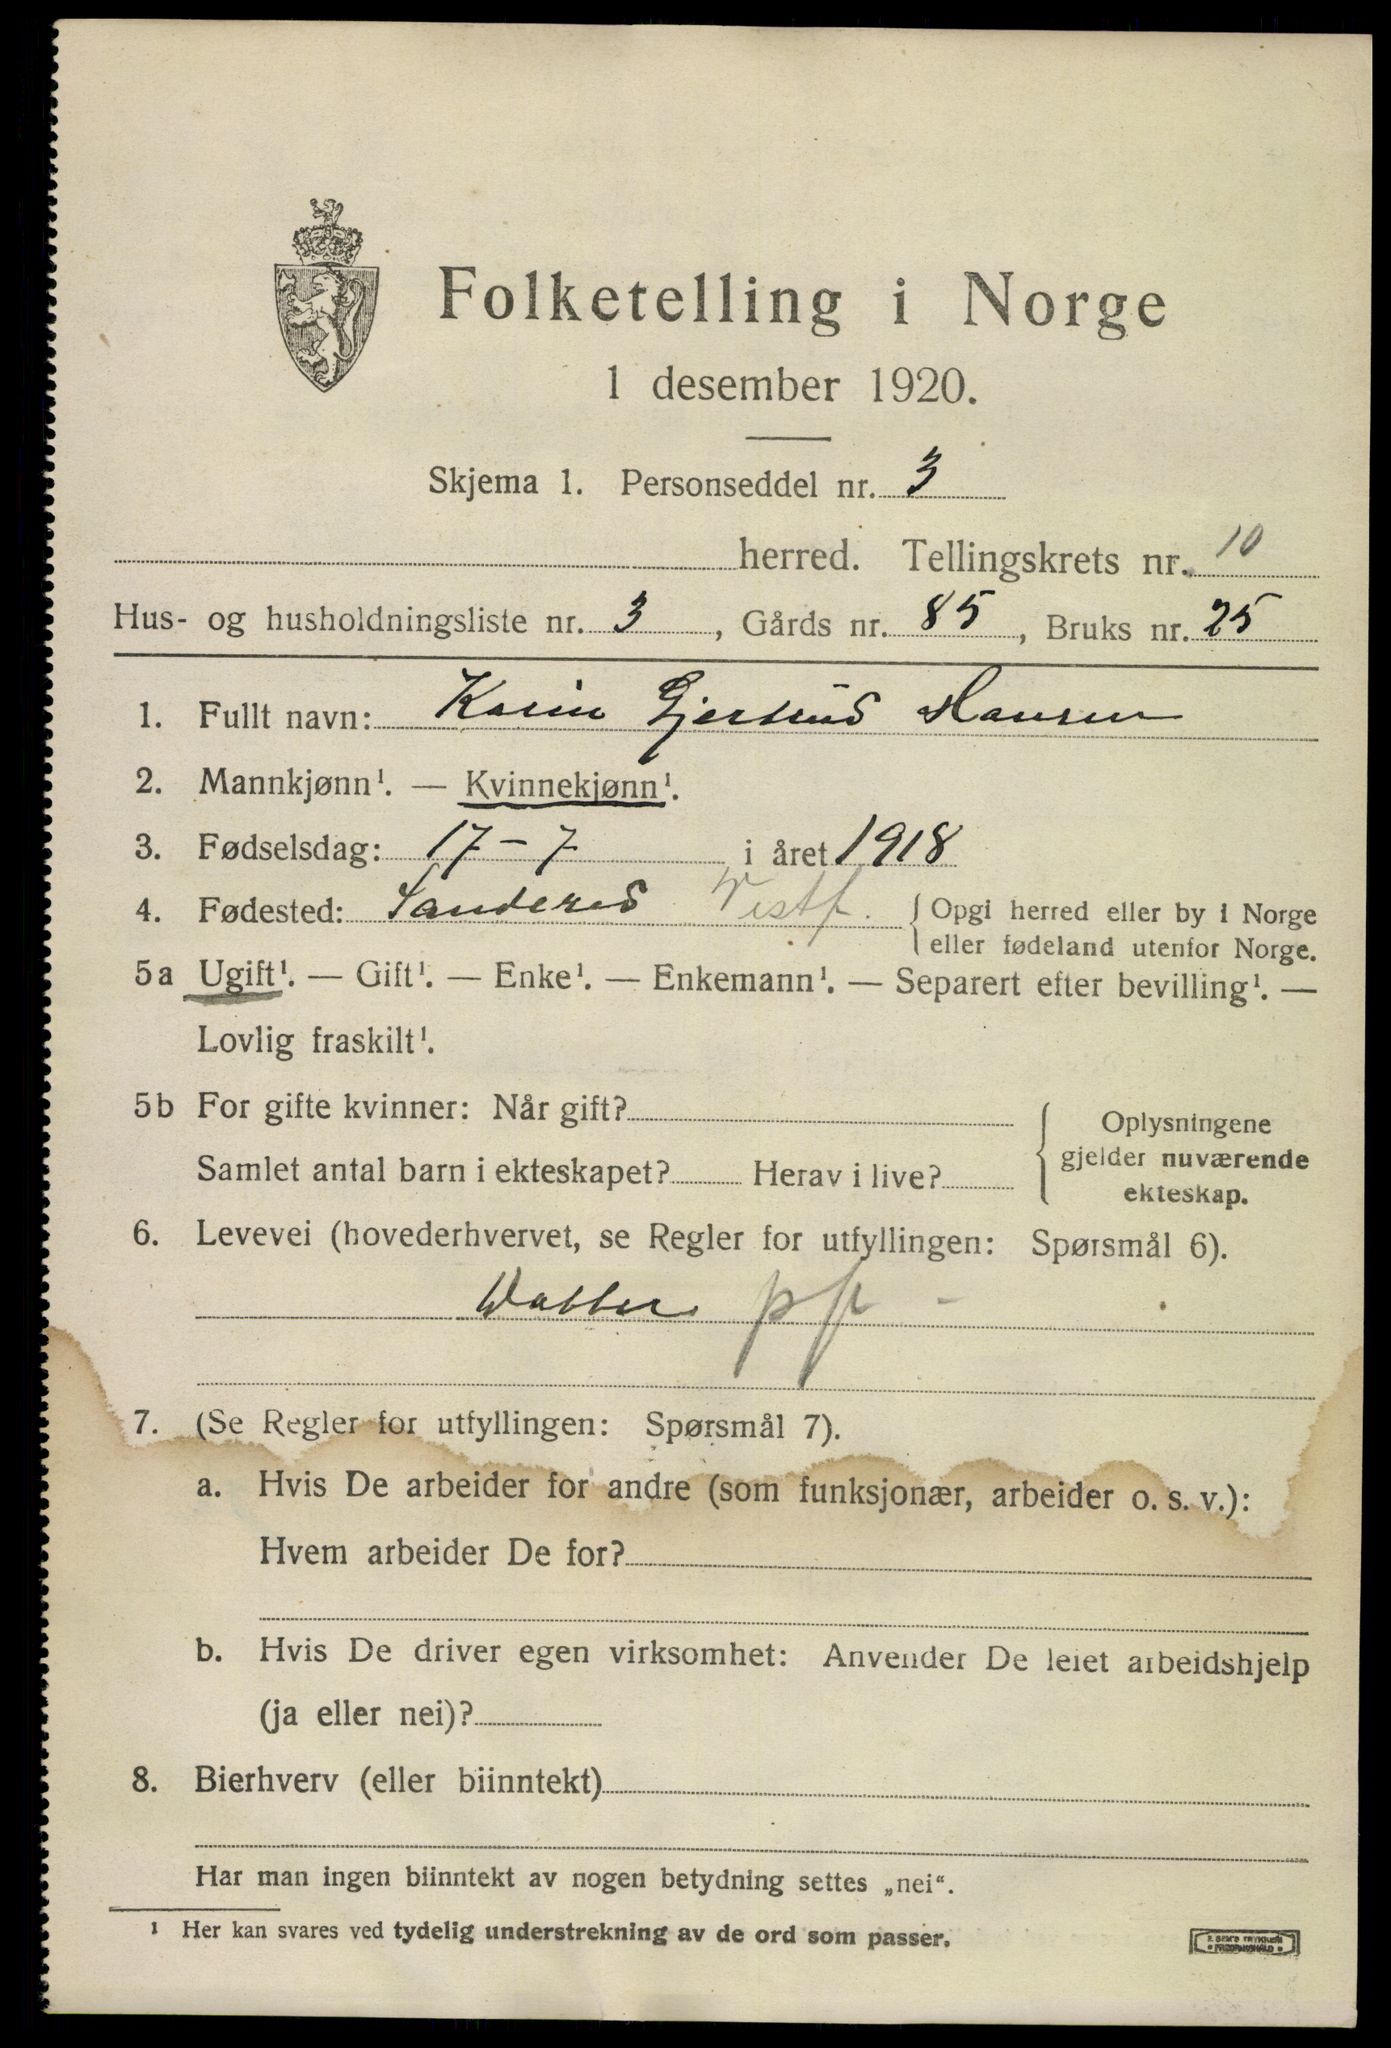 Folketelling i Norge
1 desember 1920.
Skjema 1. Personseddel nr. 3
herred. Tellingskrets nr. 10
Hus- og husholdningsliste nr. 3, Gårds nr. 85, Bruks nr. 25
1. Fullt navn: Karin Gjertrud Hansen
2. Mannkjønn¹. — Kvinnekjønn¹.
3. Fødselsdag: 17-7 i året 1918
4. Fødested: Sandered Vestf. { Opgi herred eller by i Norge
eller fødeland utenfor Norge.
5a Ugift¹. — Gift¹. — Enke¹. — Enkemann¹. — Separert efter bevilling¹. —
Lovlig fraskilt¹.
5b For gifte kvinner: Når gift?
Samlet antal barn i ekteskapet? Herav i live?
Oplysningene
gjelder nuværende
ekteskap.
6. Levevei (hovederhvervet, se Regler for utfyllingen: Spørsmål 6).
Datter
7. (Se Regler for utfyllingen: Spørsmål 7).
a. Hvis De arbeider for andre (som funksjonær, arbeider o. s. v.):
Hvem arbeider De for?
b. Hvis De driver egen virksomhet: Anvender De leiet arbeidshjelp
(ja eller nei)?
8. Bierhverv (eller biinntekt)
Har man ingen biinntekt av nogen betydning settes „nei“.
¹ Her kan svares ved tydelig understrekning av de ord som passer.